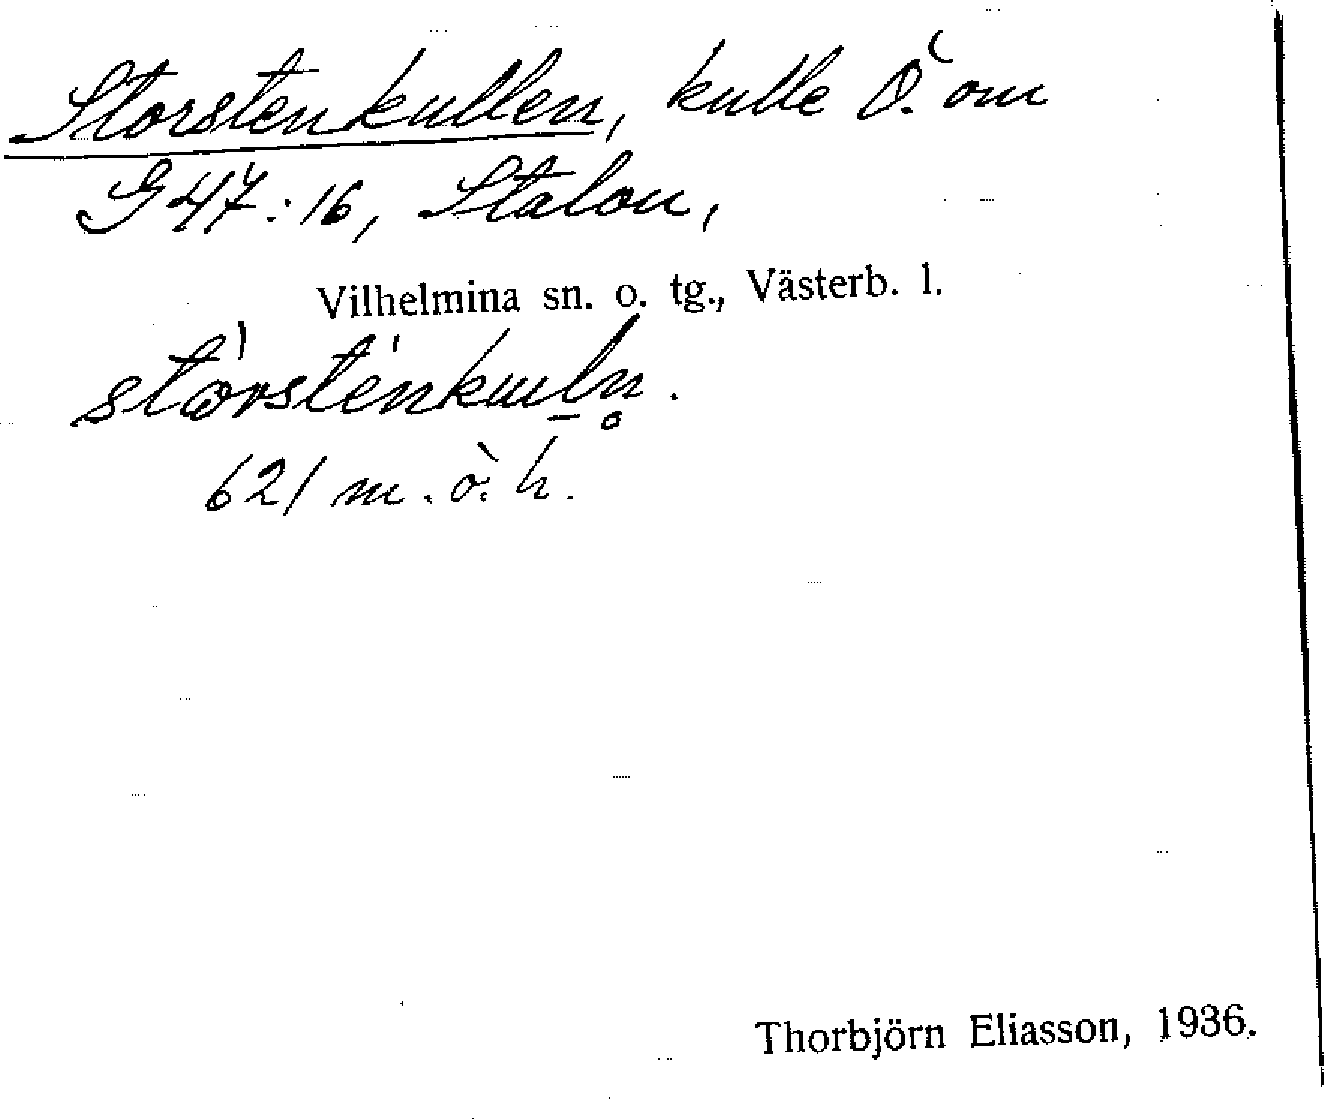 Storstenkullen, kulle Ö. om
G 47:16, Stalon,
Vilhelmina sn. o. tg., Västerb. l.
621 m. ö. h.
Thorbjörn Eliasson, 1936.